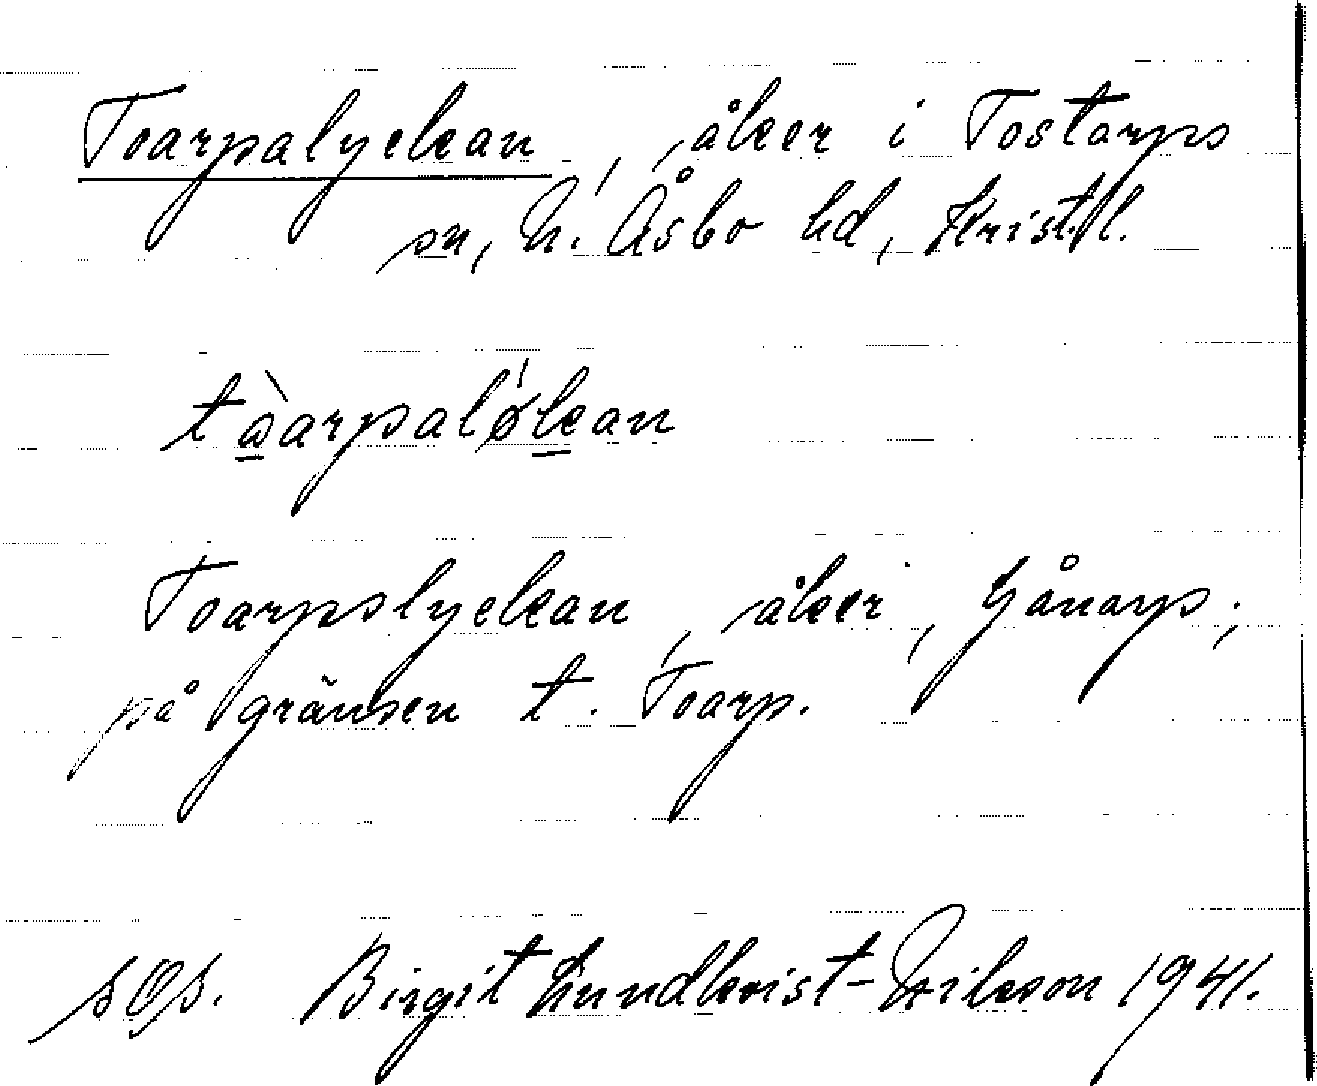 Toarpalyckan, åker i Tostarps
sn, N. Åsbo hd, Krist. l.
tòarpaløkan
Toarpslyckan, åker, Gånarps;
på gränsen t. Toarp.
sos. Birgit Lundkvist-Nilsson 1941.